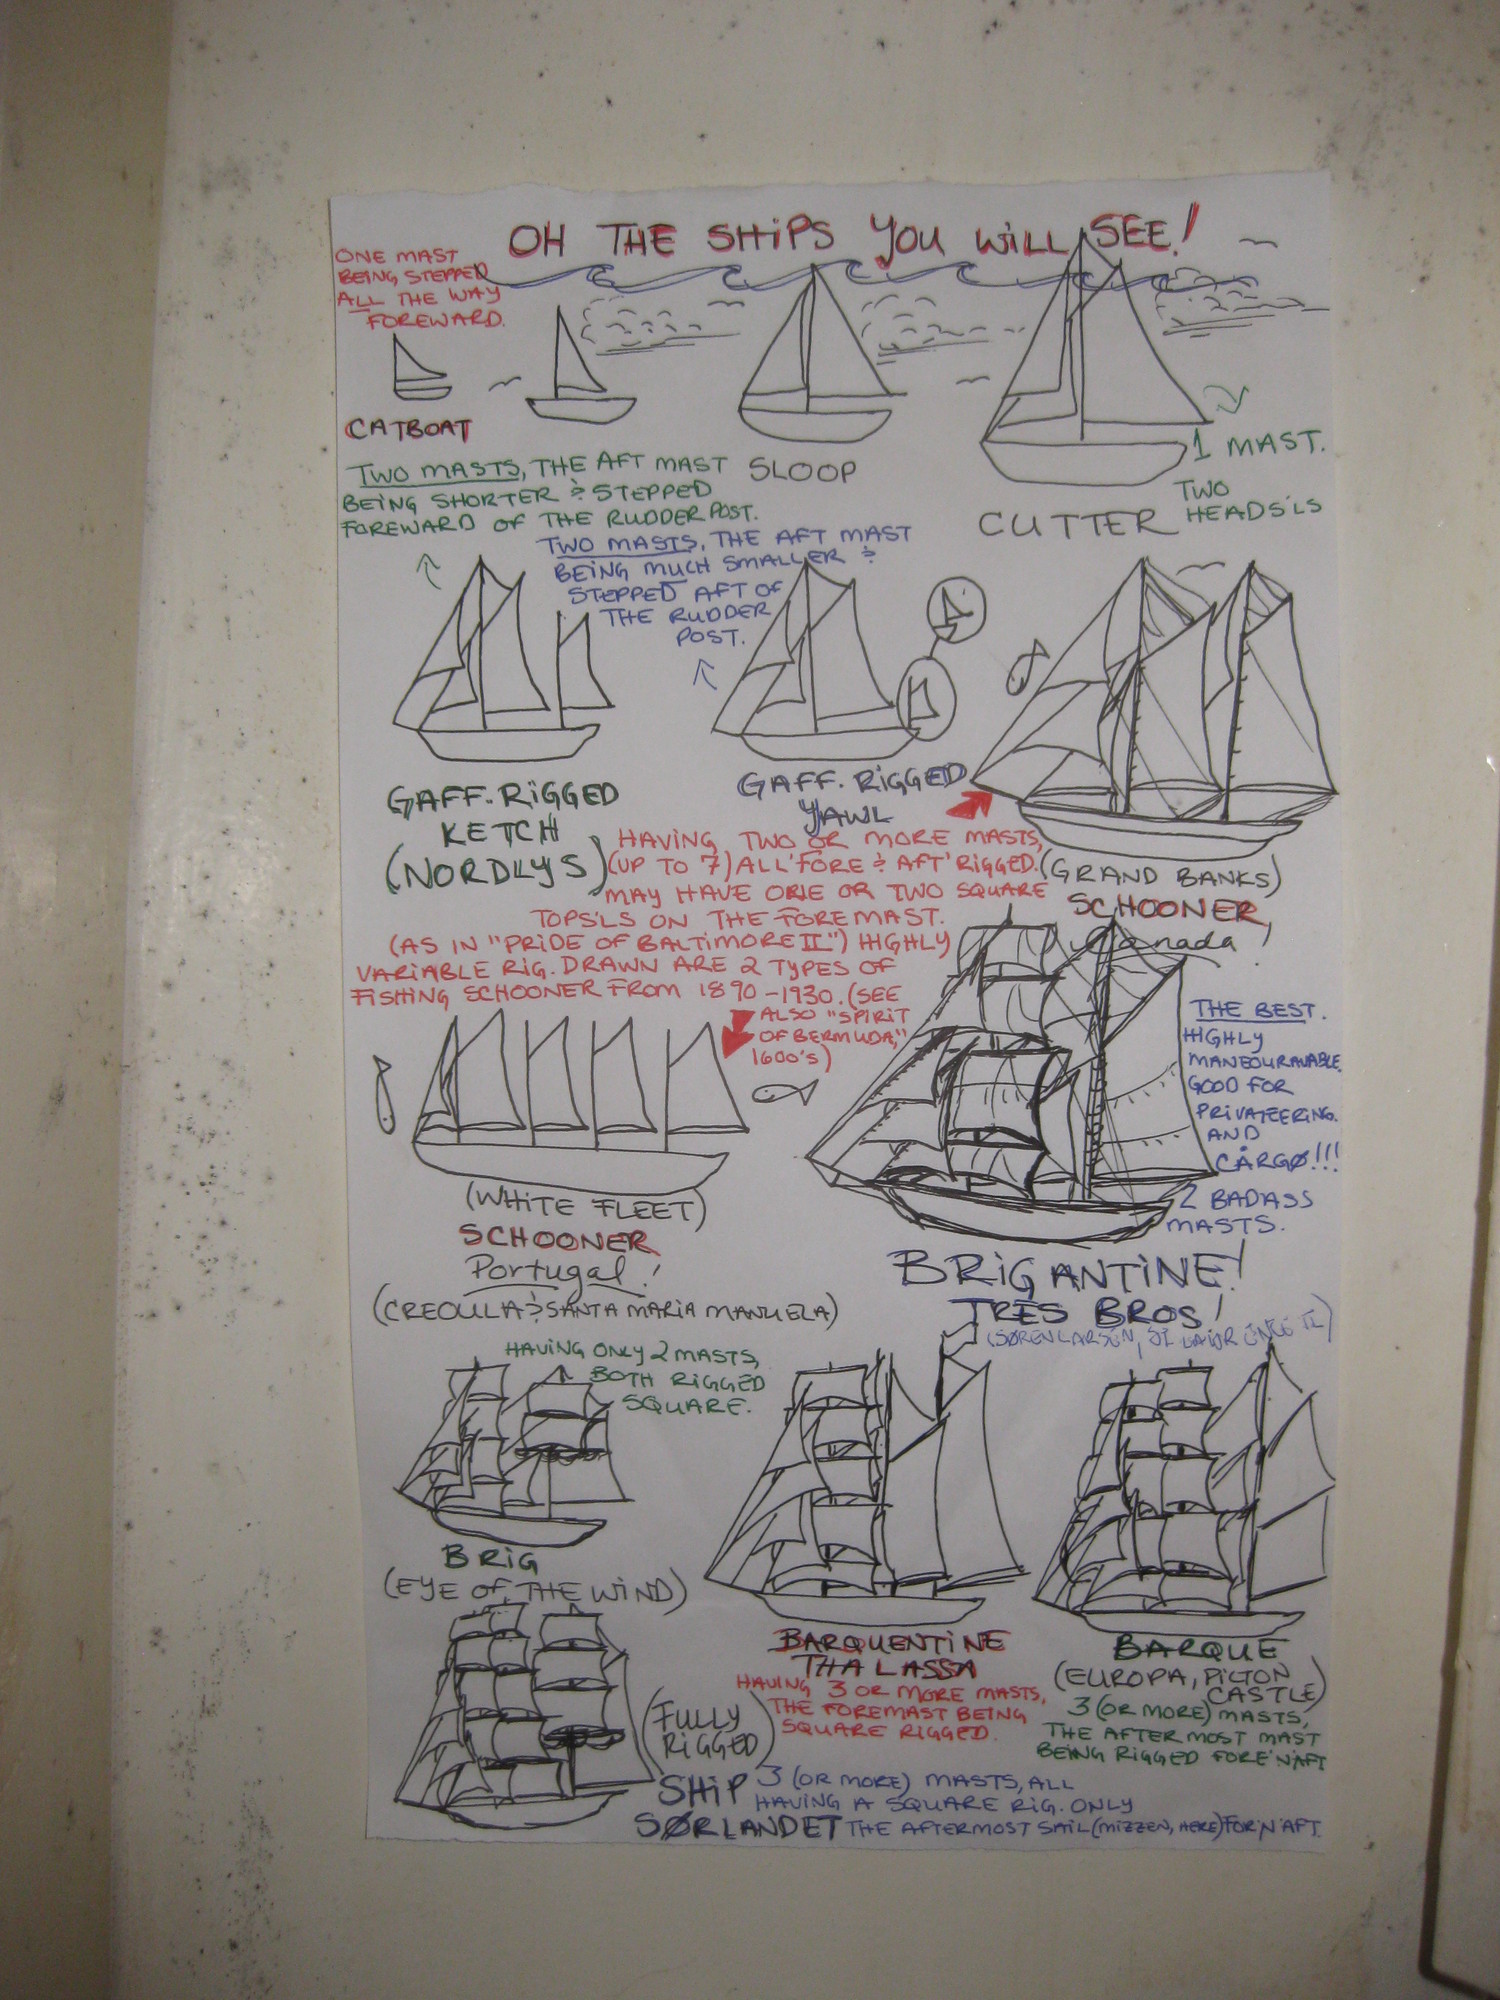 OH THE SHIPS YOU WILL SEE!
ONE MAST
BEING STEPPED
ALL THE WAY
FOREWARD.
CATBOAT
SLOOP
1 MAST.
TWO
HEADS'LS
CUTTER
TWO MASTS, THE AFT MAST
BEING SHORTER & STEPPED
FOREWARD OF THE RUDDER POST.
TWO MASTS, THE AFT MAST
BEING MUCH SMALLER &
STEPPED AFT OF
THE RUDDER
POST.
GAFF-RIGGED
KETCH
(NORDLYS)
GAFF-RIGGED
YAWL
HAVING TWO OR MORE MASTS,
(UP TO 7) ALL 'FORE & AFT' RIGGED.
MAY HAVE ONE OR TWO SQUARE
TOPS'LS ON THE FOREMAST.
(AS IN "PRIDE OF BALTIMORE II") HIGHLY
VARIABLE RIG. DRAWN ARE 2 TYPES OF
FISHING SCHOONER FROM 1890-1930. (SEE
ALSO "SPIRIT
OF BERMUDA,"
1600's)
(GRAND BANKS)
SCHOONER,
Canada!
(WHITE FLEET)
SCHOONER
Portugal!
(CREOULA & SANTA MARIA MANUELA)
THE BEST.
HIGHLY
MANEOURAVABLE.
GOOD FOR
PRIVATEERING.
AND
CARGØ!!!
2 BADASS
MASTS.
BRIGANTINE!
TRES BROS!
(SØREN LARSEN, ST LAWRENCE II)
HAVING ONLY 2 MASTS,
BOTH RIGGED
SQUARE.
BRIG
(EYE OF THE WIND)
BARQUENTINE
THALASSA
HAVING 3 OR MORE MASTS,
THE FOREMAST BEING
SQUARE RIGGED.
BARQUE
(EUROPA, PICTON
CASTLE)
3 (OR MORE) MASTS,
THE AFTER MOST MAST
BEING RIGGED FORE'N'AFT
(FULLY
RIGGED)
SHIP
SØRLANDET
3 (OR MORE) MASTS, ALL
HAVING A SQUARE RIG. ONLY
THE AFTERMOST SAIL (MIZZEN, HERE) FOR'N'AFT.